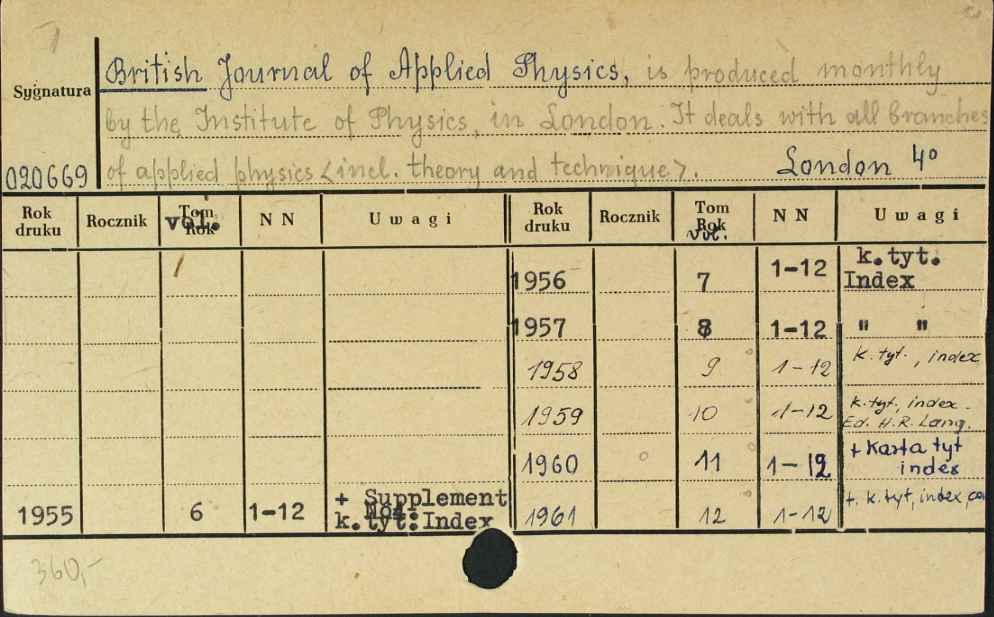 British Journal of Applied Physics, is produced monthly
Sygnatura
by the Institute of Physics, in London. It deals with all branches
020669 of applied physics <incl. theory and technique>. London 4°
Rok druku Rocznik Tom Rok vol. NN Uwagi Rok druku Rocznik Tom Rok vol. NN Uwagi
1956 7 1-12 k.tyt. Index
1957 8 1-12 " "
1958 9 1-12 k.tyt., index
1959 10 1-12 k.tyt, index.
Ed. H.R. Lang.
1960 11 1-12 + Karta tyt
index
1955 6 1-12 + Supplement
No4
k.tyt: Index
1961 12 1-12 + k.tyt, index,
360,-